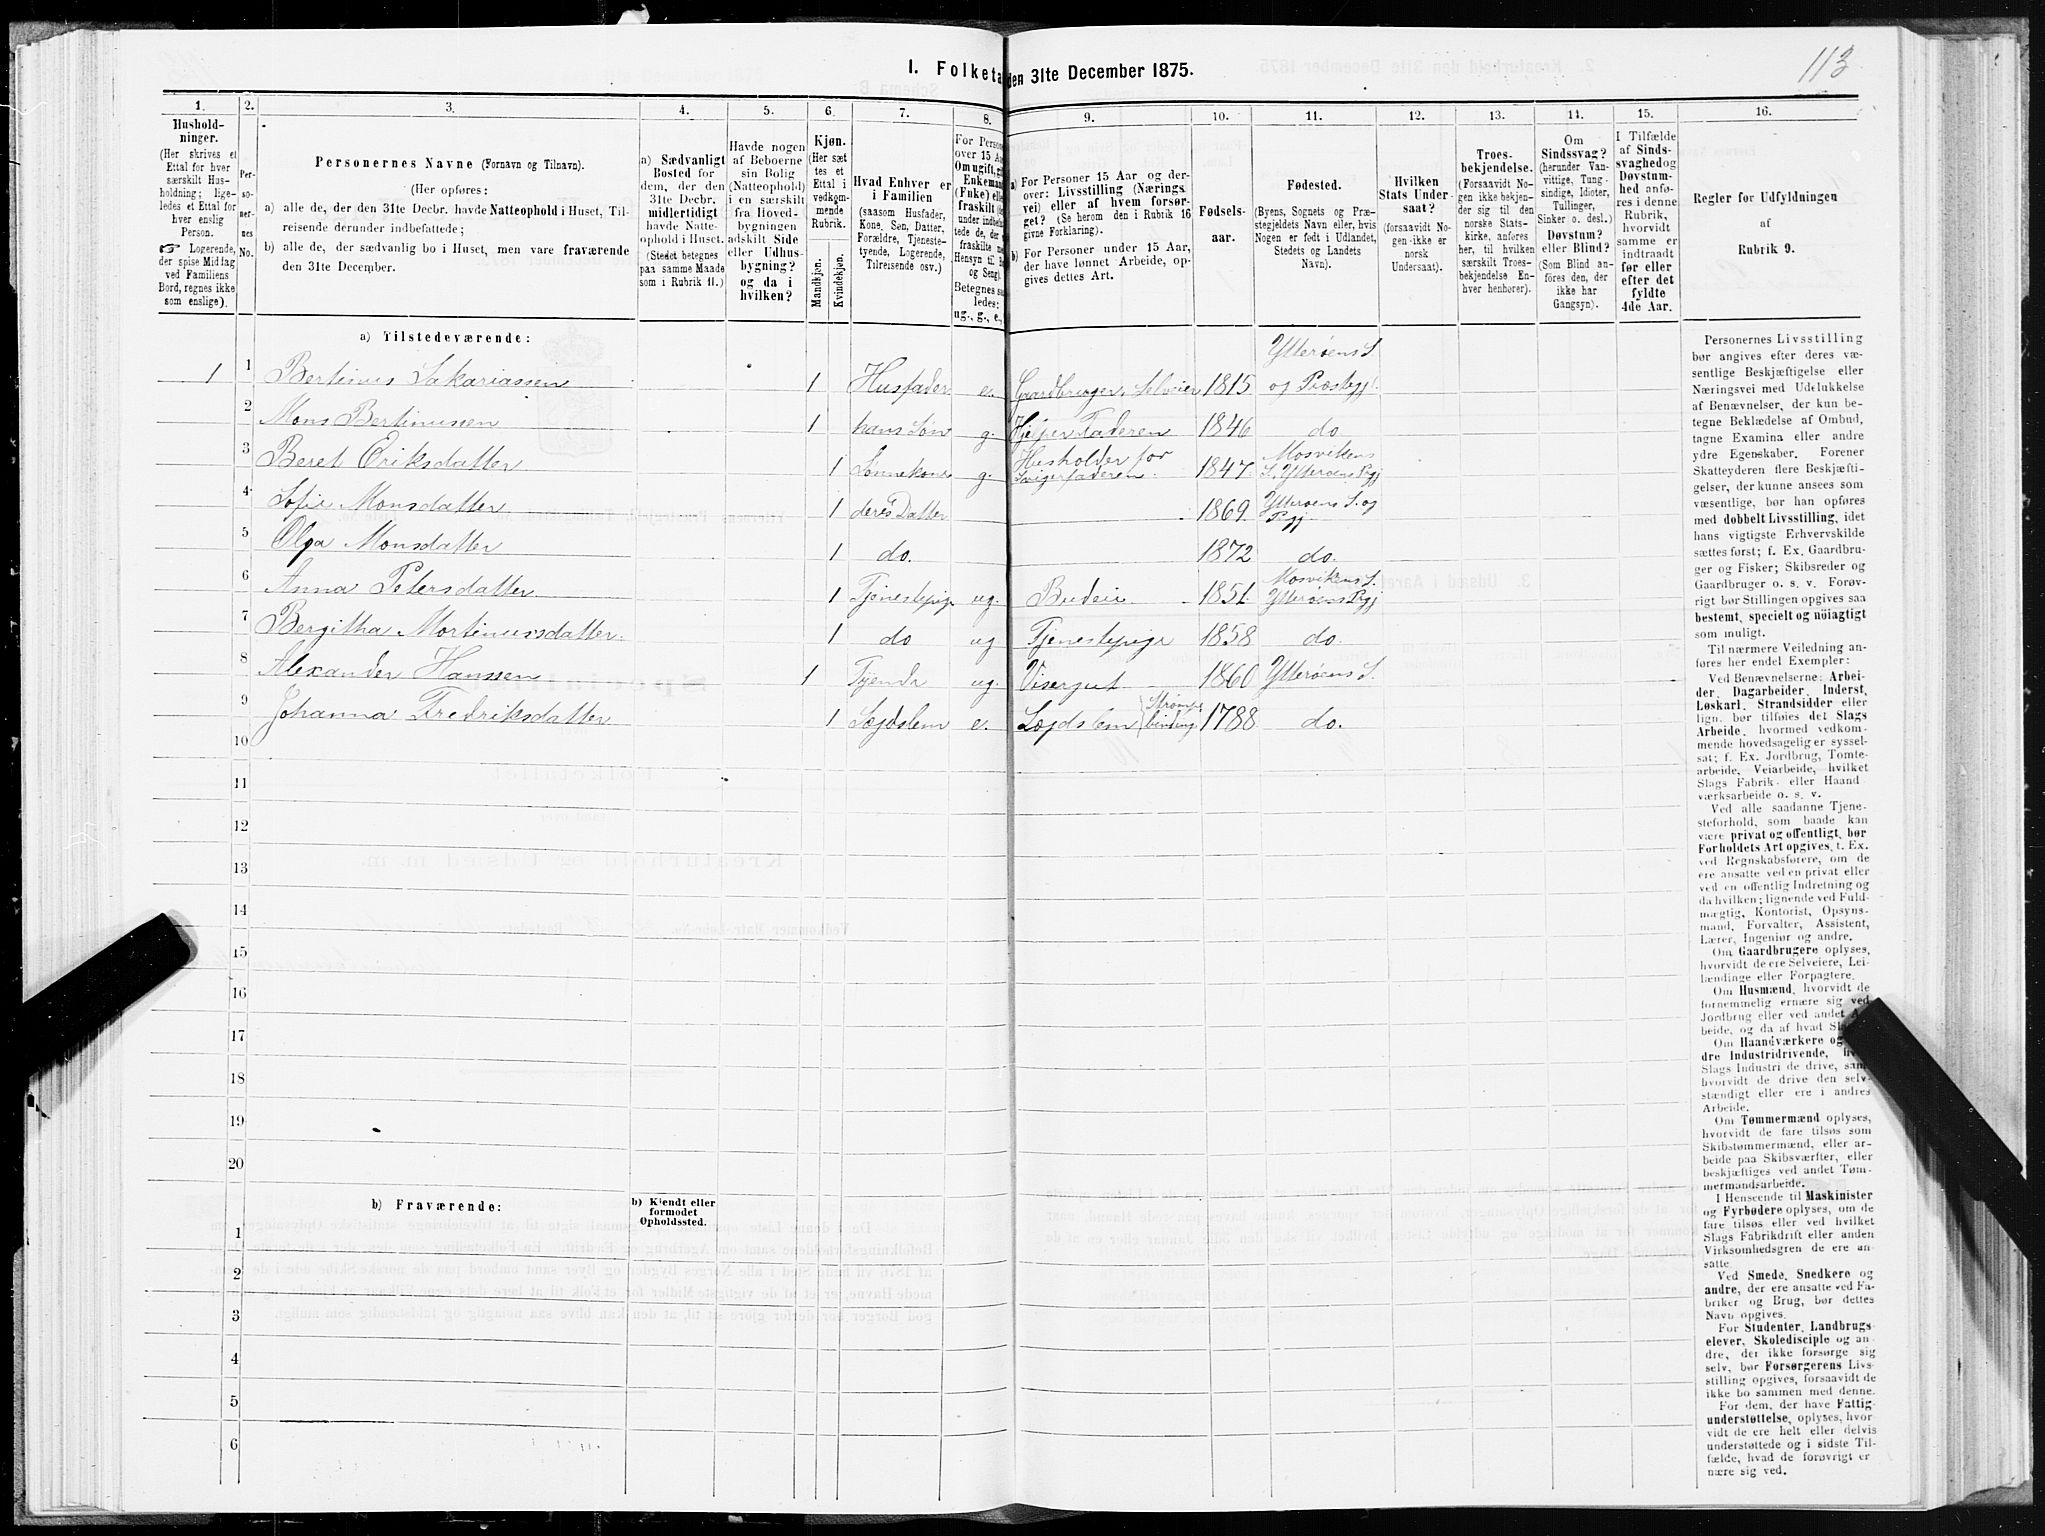 113
I. Folketa den 31te December 1875.
1.
Hushold-
ninger.
(Her skrives et
Ettal for hver
særskilt Hus-
holdning; lige-
ledes et Ettal for
hver enslig
Person.
☞ Logerende,
der spise Middag
ved Familiens
Bord, regnes ikke
som enslige).
2.
Per-
so-
ner-
nes
No.
3.
Personernes Navne (Fornavn og Tilnavn).
(Her opføres:
a) alle de, der den 31te Decbr. havde Natteophold i Huset, Til-
reisende derunder indbefattede;
b) alle de, der sædvanlig bo i Huset, men vare fraværende
den 31te December.
4.
a) Sædvanligt
Bosted for
dem, der den
31te Decbr.
midlertidigt
havde Natte-
ophold i Huset.
(Stedet betegnes
paa samme Maade
som i Rubrik 11.)
5.
Havde nogen
af Beboerne
sin Bolig
(Natteophold)
i en særskilt
fra Hoved-
bygningen
adskilt Side
eller Udhus-
bygning?
og da i
hvilken?
6.
Kjøn.
(Her sæt
tes et
Ettal i
vedkom-
mende
Rubrik.
Mandkjøn.
Kvindekjøn.
7.
Hvad Enhver er
i Familien
(saasom Husfader,
Kone, Søn, Datter,
Forældre, Tjeneste-
tyende, Logerende,
Tilreisende osv.)
8.
For Person
over 15 Aa
Om ugift, g
Enkeman
(Fuke) elle
fraskilt
under indbe
tede de, der
fraskilte
Hensyn til
og Seng).
Betegnes saa
ledes:
ug., g., e.,
9.
a) For Personer 15 Aar og der-
over: Livsstilling (Nærings
vei) eller af hvem forsør-
get? (Se herom den i Rubrik 16
givne Forklaring).
b) For Personer under 15 Aar,
der have lønnet Arbeide, op-
gives dettes Art.
10.
Fødsels-
aar.
11.
Fødested.
(Byens, Sognets og Præ-
stegjeldets Navn eller, hvis
Nogen er født i Udlandet,
Stedets og Landets
Navn).
12.
Hvilken
Stats Under-
saat?
(forsaavidt No-
gen ikke er
norsk
Undersaat).
13.
Troes-
bekjendelse.
(Forsaavidt No-
gen ikke bekjen-
der sig til den
norske Stats-
kirke, anføres
her, til hvilken
særskilt Troes-
bekjendelse En-
hver henhører).
14.
Om
Sindssvag?
(herunder Van-
vittige, Tung-
sindige, Idioter,
Tullinger,
Sinker o. desl.)
Døvstum?
eller Blind?
(Som Blind an-
føres den, der
ikke har
Gangsyn).
15.
I Tilfælde
af Sinds-
svaghed og
Døvstum-
hed anfø-
res i denne
Rubrik,
hvorvidt
samme er
indtraadt
før eller
efter det
fyldte
4de Aar.
16.
Regler for Udfyldningen
af
Rubrik 9.
a) Tilstedeværende:
1 1 Bertinus Sakariassen 1 Husfader e. Gaardbruger, Selveier 1815 Ytterøens S. og Præstegj.
2 Mons Bertinussen 1 hans Søn g. Hjelper Faderen 1846 do
3 Beret Eriksdatter 1 Sønnekone g. Husholder for Svigerfaderen. 1847 Mosvikens S. Ytterøens Pgj
4 Sofie Monsdatter 1 deres Datter 1869. Ytterøens S. og Pgj
5 Olga Monsdatter 1 do. 1872 do.
6 Anna Petersdatter 1 Tjenestepige ug. Budeie 1851. Mosvikens S. Ytterøens Pgj
7 Bergitha Mortinussdatter. 1 do ug Tjenestepige 1858 do.
8 Alexander Hanssen 1 Tyende ug. Visergut 1860 Ytterøens S.
9 Johanna Fredriksdatter 1 Lægdslem e. Lægdslem Strømpebinding 1788 do.
10
11
12
13
14
15
16
17
18
19
20
b) Fraværende:
b) Kjendt eller
formodet
Opholdssted.
1
2
3
4
5
6
Personernes Livsstilling
bør angives efter deres væ-
sentlige Beskjæftigelse eller
Næringsvei med Udelukkelse
af Benævnelser, der kun be-
tegne Beklædelse af Ombud,
tagne Examina eller andre
ydre Egenskaber. Forener
Skatteyderen flere Beskjæfti-
gelser, der kunne ansees som
væsentlige, bør han opføres
med dobbelt Livsstilling, idet
hans vigtigste Erhvervskilde
sættes først; f. Ex. Gaardbru-
ger og Fisker; Skibsreder og
Gaardbruger o. s. v. Forøv-
rigt bør Stillingen opgives saa
bestemt, specielt og nöiagtigt
som muligt.
Til nærmere Veiledning an-
føres her endel Exempler:
Ved Benævnelserne: Arbei-
der, Dagarbeider, Inderst,
Løskarl, Strandsidder eller
lign. bør tilføies det Slags
Arbeide, hvormed vedkom-
mende hovedsagelig er syssel-
sat; f. Ex. Jordbrug, Tomte-
arbeide, Veiarbeide, hvilket
Slags Fabrik- eller Haand
værksarbeide o. s. v.
Ved alle saadanne Tjene-
steforhold, som baade kan
være privat og offentligt, bør
Forholdets Art opgives, t. Ex.
ved Regnskabsførere, om de
ere ansatte ved en privat eller
ved en offentlig Indretning og
da hvilken; lignende ved Fuld-
mægtig, Kontorist, Opsyns-
mand, Forvalter, Assistent,
Lærer, Ingeniør og andre.
Om Gaardbrugere oplyses,
hvorvidt de ere Selveiere, Lei-
lændinge eller Forpagtere.
Om Husmænd, hvorvidt de
fornemmelig ernære sig ved
Jordbrug eller ved andet A
beide, og da af hvad Sla
Om Haandværkere og
dre Industridrivende, h
Slags Industri de drive, sam
hvorvidt de drive den selv-
stændigt eller ere i andres
Arbeide.
Om Tømmermænd oplyses,
hvorvidt de fare tilsøs som
Skibstømmermænd, eller ar-
beide paa Skibsværfter, eller
beskjæftiges ved andet Tøm-
mermandsarbeide.
I Henseende til Maskinister
og Fyrbødere oplyses, om de
fare tilsøs eller ved hvilket
Slags Fabrikdrift eller anden
Virksomhedsgren de ere an-
satte.
Ved Smede, Snedkere og
andre, der ere ansatte ved Fa-
briker og Brug, bør dettes
Navn opgives.
For Studenter, Landbrugs-
elever, Skoledisciple og an-
dre, der ikke forsørge sig
selv, bør Forsørgerens Livs-
stilling opgives, forsaavidt de
ikke bo sammen med denne.
For dem, der have Fattig-
understøttelse, oplyses, hvor-
vidt de ere helt eller delvis
understøttede og i sidste Til-
fælde, hvad de forøvrigt er-
nære sig ved.